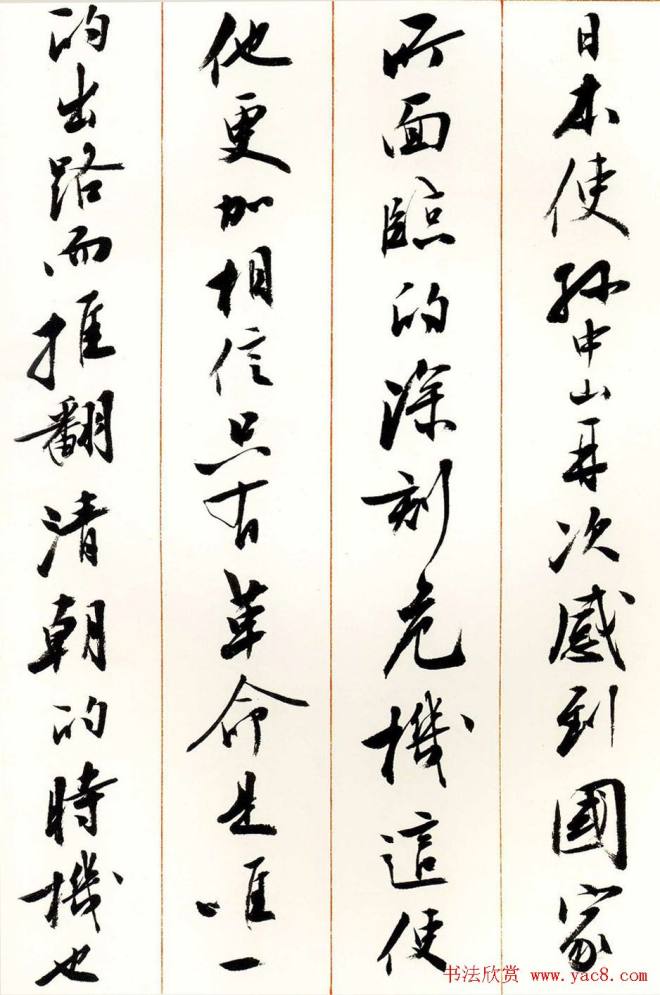 日本使孙中山再次感到國家
所面臨的深刻危機這使
他更加相信只有革命是唯一
的出路而推翻清朝的時機也
书法欣赏 www.yac8.com